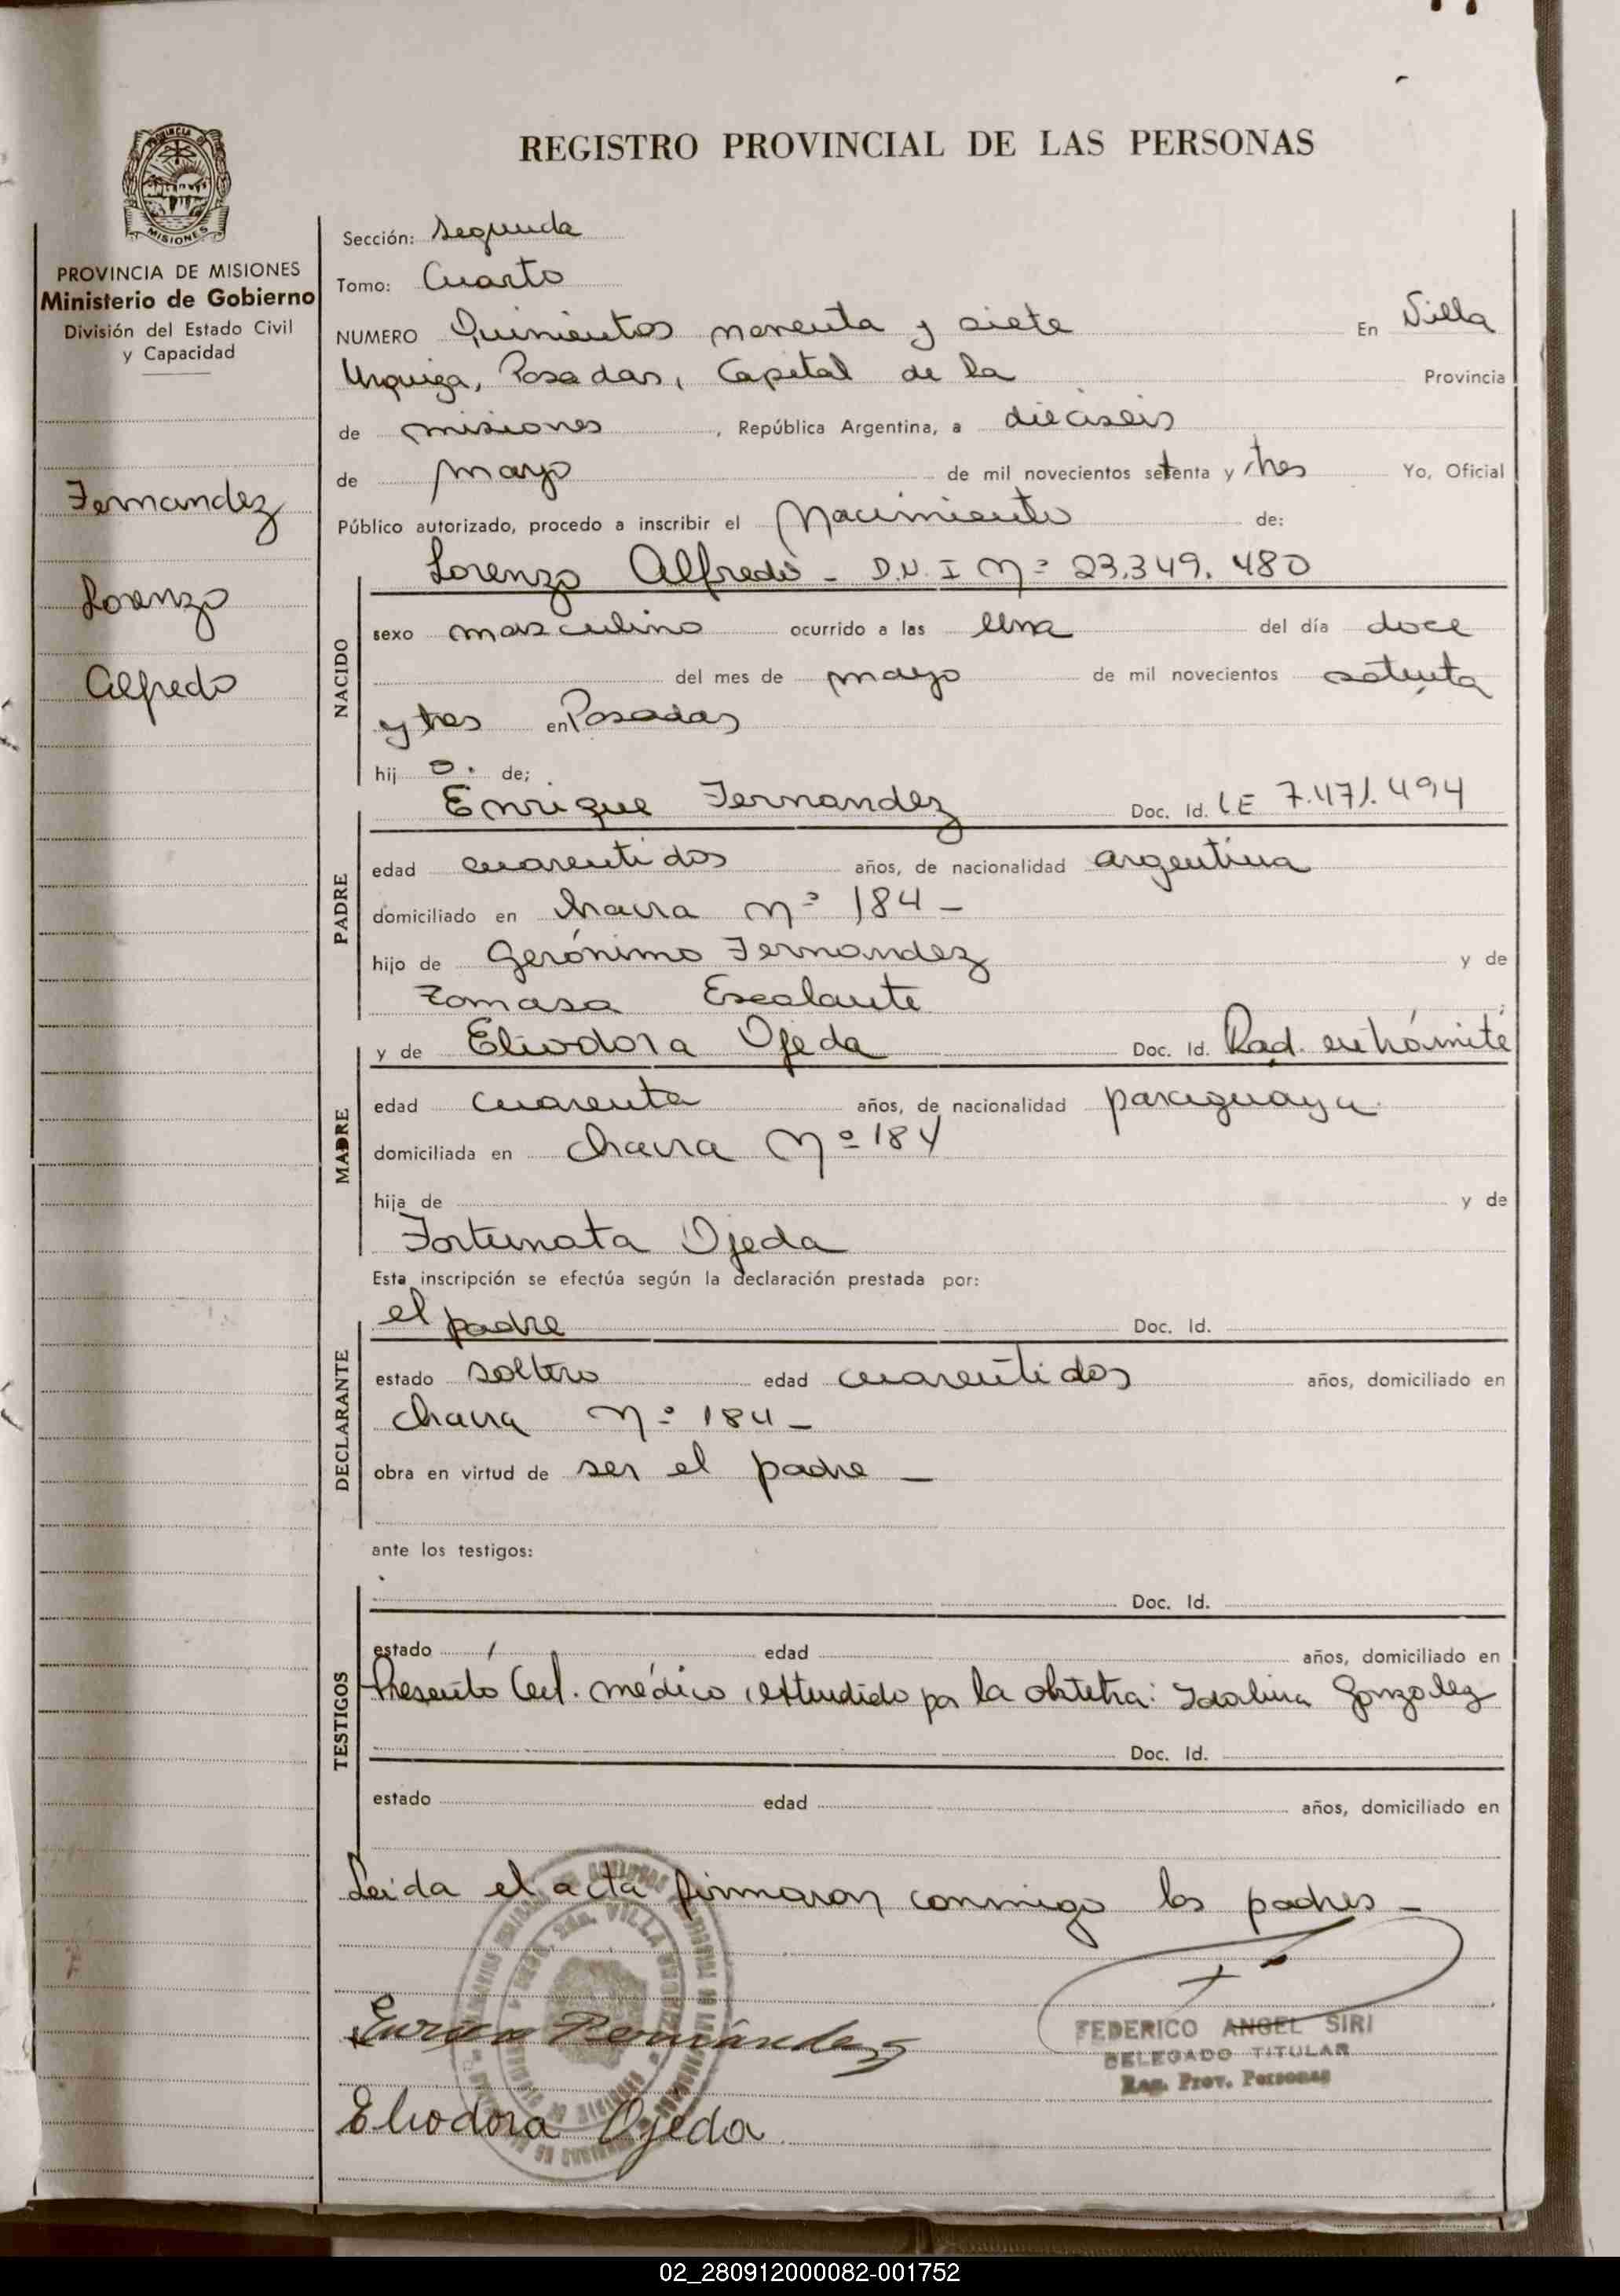 REGISTRO PROVINCIAL DE LAS PERSONAS
MISIONES
PROVINCIA DE MISIONES
Ministerio de Gobierno
División del Estado Civil
y Capacidad
Fernandez
Lorenzo
Alfredo
Sección: Segunda
Tomo: Cuarto
NUMERO Quinientos noventa y siete En Villa
Urquiza, Posadas, Capital de la Provincia
de misiones, República Argentina, a dieciseis
de mayo de mil novecientos setenta y tres Yo, Oficial
Público autorizado, procedo a inscribir el Nacimiento de:
Lorenzo Alfredo - D.N.I Nº 23.349.480
NACIDO
sexo masculino ocurrido a las una del día doce
del mes de mayo de mil novecientos setenta
y tres en Posadas
hij o. de;
Enrique Fernandez Doc. Id. LE 7.471.494
PADRE
edad cuarentidos años, de nacionalidad argentina
domiciliado en chacra Nº 184 -
hijo de Gerónimo Fernandez y de
Tomasa Escalante
y de Eliodora Ojeda Doc. Id. Rad. en trámite
MADRE
edad cuarenta años, de nacionalidad paraguaya
domiciliada en chacra Nº 184
hija de y de
Fortunata Ojeda
Esta inscripción se efectúa según la declaración prestada por:
el padre Doc. Id.
DECLARANTE
estado soltero edad cuarentidos años, domiciliado en
chacra Nº 184 -
obra en virtud de ser el padre -
ante los testigos:
Doc. Id.
TESTIGOS
estado edad años, domiciliado en
Presentó Cert. médico, extendido por la obstetra: Idalina Gonzalez
Doc. Id.
estado edad años, domiciliado en
Leída el acta firmaron conmigo los padres -
Fernández
FEDERICO ANGEL SIRI
DELEGADO TITULAR
Reg. Prov. Personas
Eliodora Ojeda
02_280912000082-001752